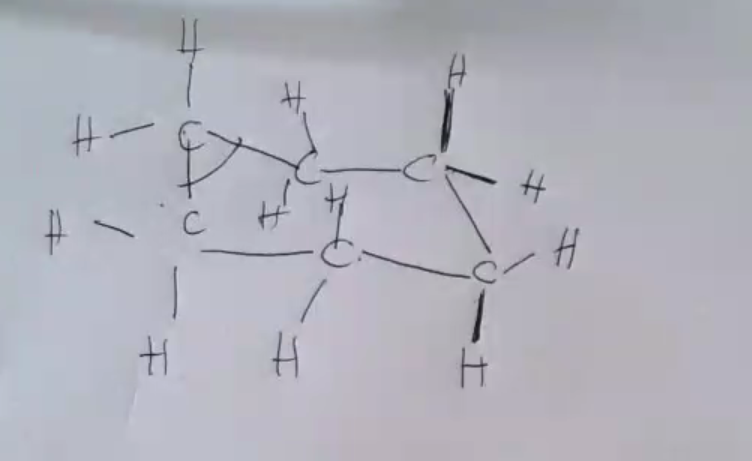 H
H
H
H C C C H
H H
H C C C H
H H H